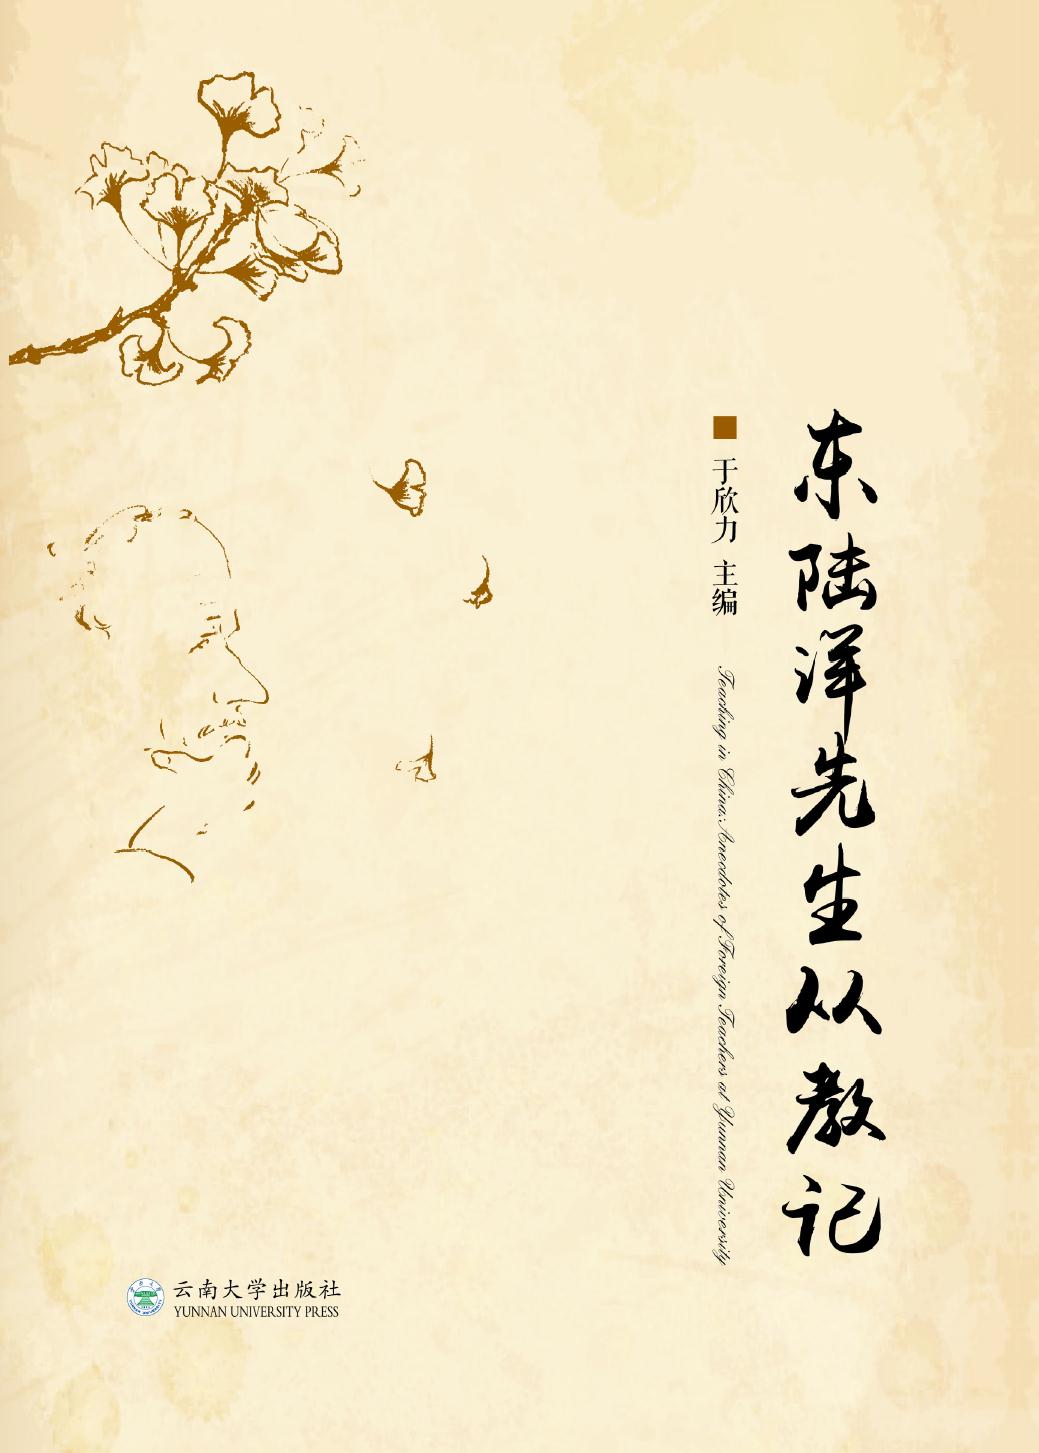 东陆洋先生从教记
于欣力 主编
Teaching in China: Anecdotes of Foreign Teachers at Yunnan University
云南大学出版社
YUNNAN UNIVERSITY PRESS